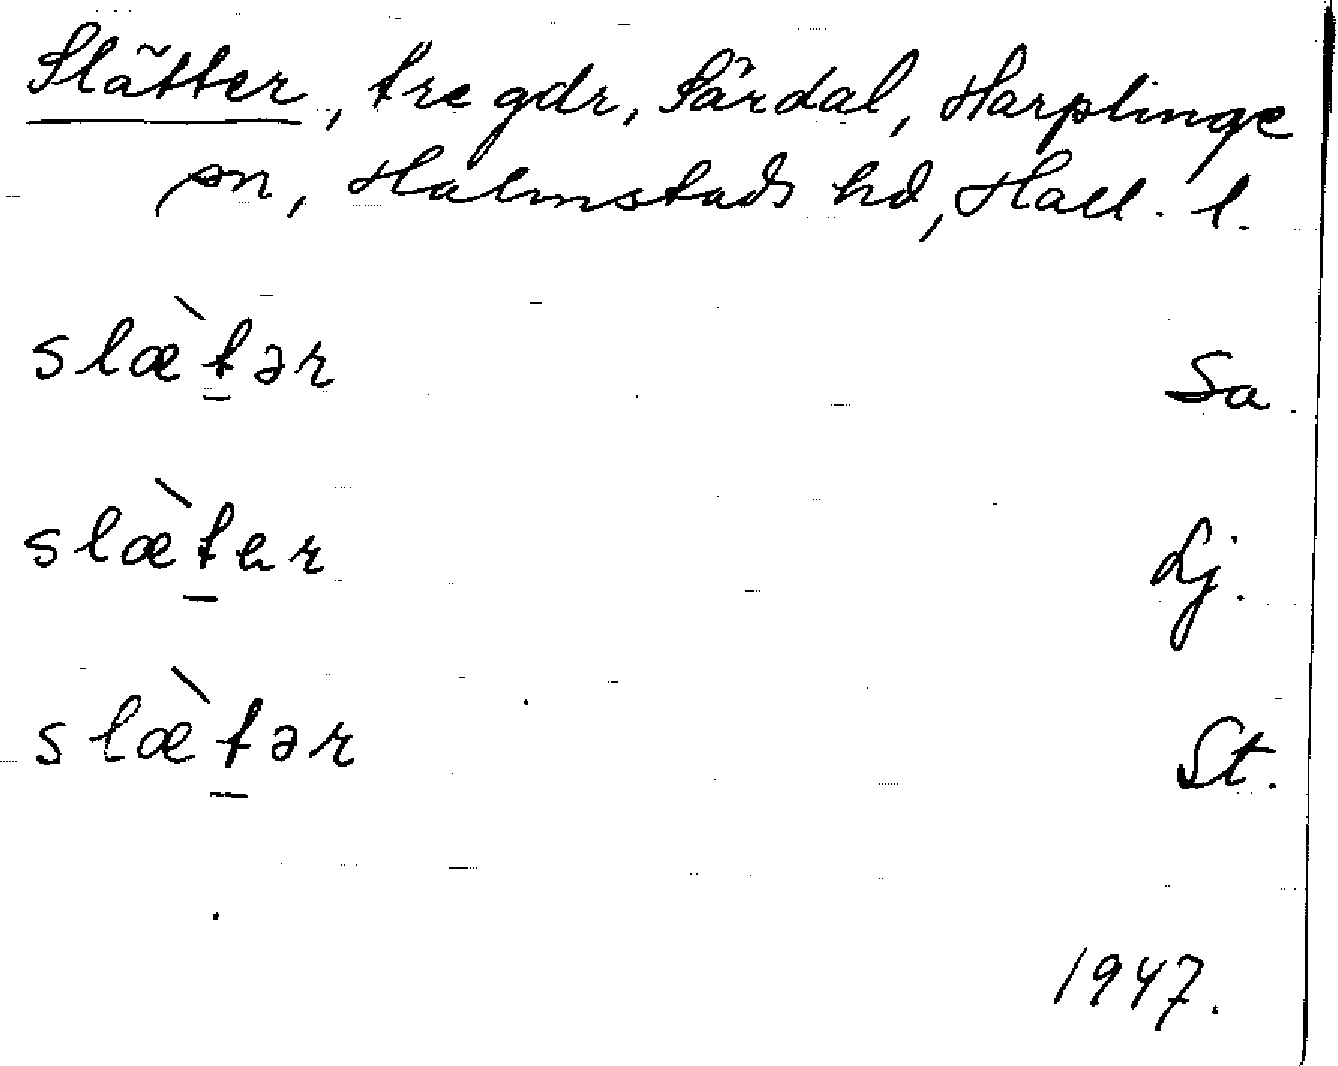 Slätter, tre gdr, Särdal, Harplinge
sn, Halmstads hd, Hall. l.
slæ̀t̲ər Sa.
slæ̀t̲er Lj.
slæ̀t̲ər St.
1947.